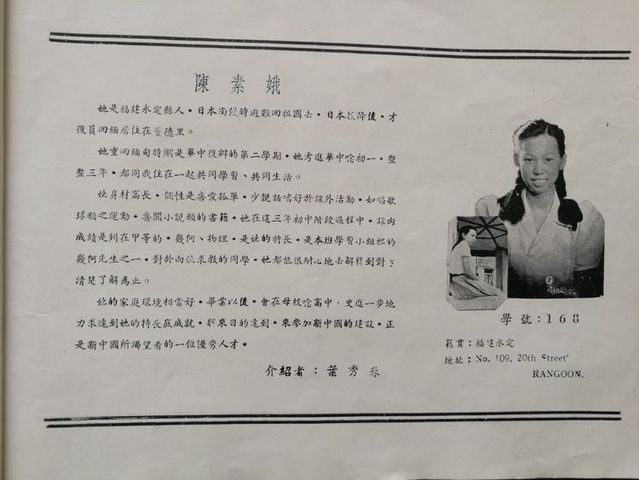 陳素娥
她是福建永定縣人・日本南侵時避難回祖國去・日本投降後，才
復員回緬居住在曼德里。
她重回緬甸時剛是華中復辦的第二學期・她考進華中唸初一・整
整三年・都同我住在一起共同學習、共同生活。
她身材高長・個性是喜愛孤單・少說話嗜好於課外活動・如唱歌
球類之運動・喜閱小說類的書籍・她在這三年初中階段過程中・課內
成績是列在甲等的・幾何、物理・是她的特長・是本班學習小組裡的
幾何先生之一・對於向她求教的同學・她都能很耐心地去解釋到對方
清楚了解為止。
她的家庭環境相當好・畢業以後・會在母校唸高中・更進一步地
力求達到她的特長底成就・將來目的達到・來參加新中國的建設・正
是新中國所渴望着的一位優秀人才・
介紹者：葉秀
學號：168
籍貫：福建永定
地址：No. 109, 20th Street'
RANGOON.